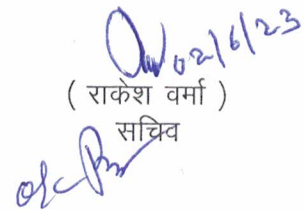 02/6/23
( राकेश वर्मा )
सचिव